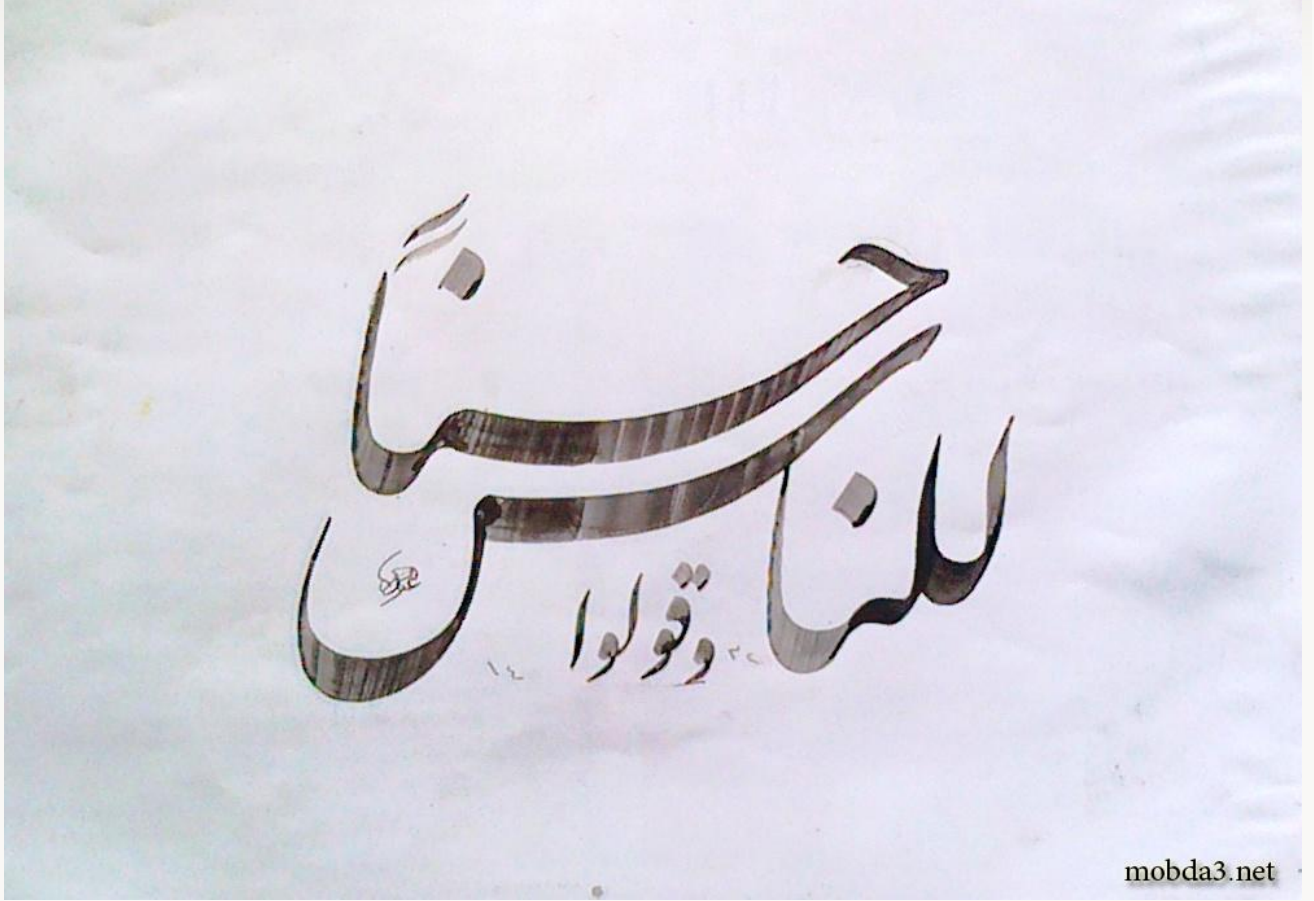 وقولوا
للناس
حسناً
١٤
٣٤
mobda3.net